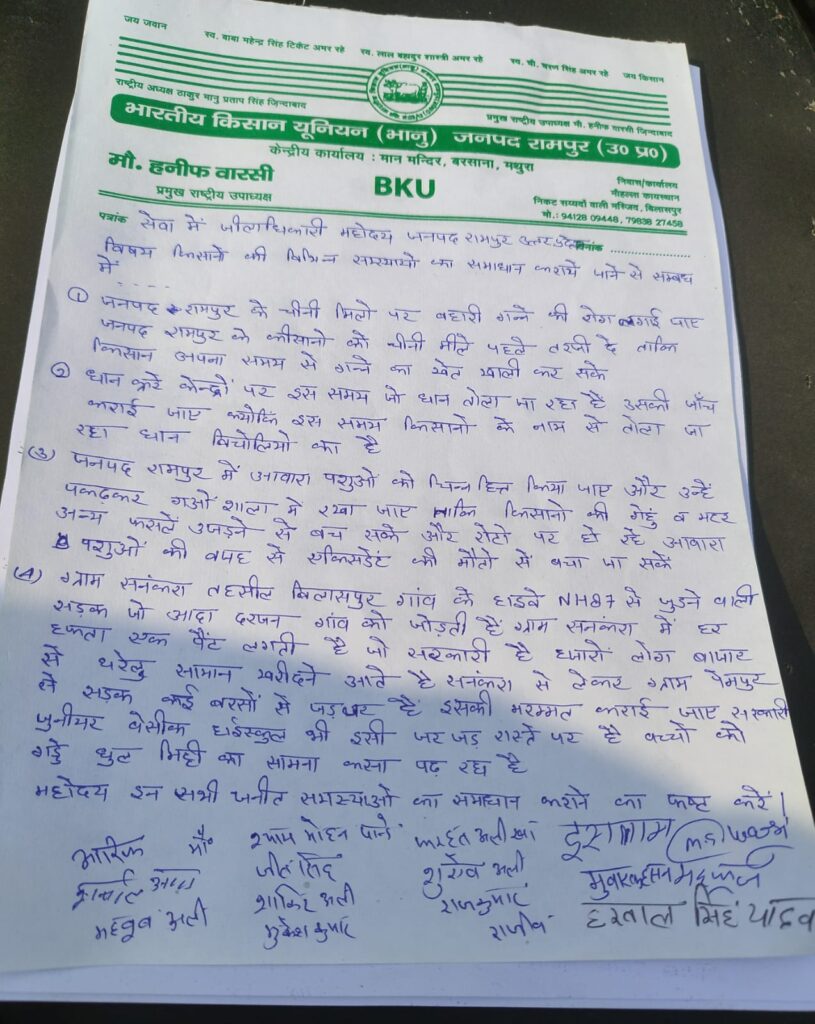 जय जवान स्व. बाबा महेन्द्र सिंह टिकैत अमर रहे स्व. लाल बहादुर शास्त्री अमर रहे स्व. चौ. चरण सिंह अमर रहे जय किसान
राष्ट्रीय अध्यक्ष ठाकुर भानु प्रताप सिंह ज़िन्दाबाद प्रमुख राष्ट्रीय उपाध्यक्ष मौ. हनीफ वारसी ज़िन्दाबाद
भारतीय किसान यूनियन (भानु) जनपद रामपुर (उ० प्र०)
केन्द्रीय कार्यालय : मान मन्दिर, बरसाना, मथुरा
मौ. हनीफ वारसी
प्रमुख राष्ट्रीय उपाध्यक्ष
BKU
निवास/कार्यालय
मौहल्ला कायस्थान
निकट सय्यदों वाली मस्जिद, बिलासपुर
मो.: 94128 09448, 79838 27458
पत्रांक सेवा में जीलाधिकारी महोदय जनपद रामपुर उत्तर प्रदेश
विषय किसानो की विभिन्न समस्यायो का समाधान कराये जाने से सम्बध
में
① जनपद रामपुर के चीनी मिलो पर बहारी गन्ने की रोग लगाई जाए
जनपद रामपुर के कीसानो को चीनी मीले पहले तरजी दे ताकि
किसान अपना समय से गन्ने का खेत खाली कर सके
② धान क्रर केन्द्रों पर इस समय जो धान तोला जा रहा है उसकी जाँच
कराई जाए क्योकि इस समय किसानो के नाम से तोला जा
रहा धान बिचोलियो का है
(3) जनपद रामपुर में आवारा पशुओं को चिन्न हित्त किया जाए और उन्हें
पकढ़कर गओं शाला में रखा जाए ताकि किसानो की गेहुं व मटर
अन्य फसलें उजड़ने से बच सके और रोटो पर हो रहे आवारा
पशुओं की वजह से एकिसडेंट की मौतो से बचा जा सकें
(4) ग्राम सनकरा तहसील बिलासपुर गांव के हाइवे NH87 से जुडने वाली
सड़क जो आदा दरजन गांव को जोड़ती हैं ग्राम सनकरा में हर
हफता एक पैंट लगती है जो सरकारी है हजारों लोग बाजार
से घरेलु सामान खरीदने आते है सनकरा से लेकर ग्राम पेमपुर
से सड़क कई बरसों से जड़ जर हैं इसकी मरम्मत कराई जाए सरकारी
जुनीयर वेसीक हाईस्कुल भी इसी जर जड़ रास्ते पर है बच्चो को
गड्डे धुल मिट्टी का सामना करना पढ़ रहा है
महोदय इन सभी जनीत समस्याओं का समाधान कराने का कष्ट करें।
आरिफ मौ० श्याम मोहन पान्डे फरहत अली खां
जीत सिंह शुऐब अली
शाकिर अली राजकुमार
महबूब अली मुकेश कुमार राजीव हरपाल सिंह यादव